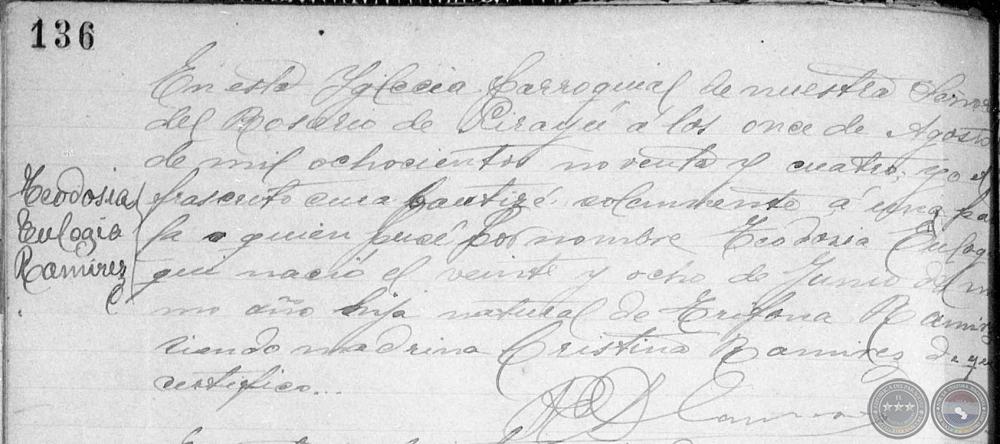 136
En esta Yglecia Parroquial de nuestra Señora
del Rosario de Pirayú a los once de Agosto
de mil ochocientos noventa y cuatro, yo el
Teodosia
Eulogia
Ramirez
frascrito cura bautizé solamente á una par
la a quien pusé por nombre Teodosia Eulog
qui nació el veinte y ocho de Junio del m
mo año hija natural de Ramirez
siendo madrina Cristina Ramirez de que
certifico...